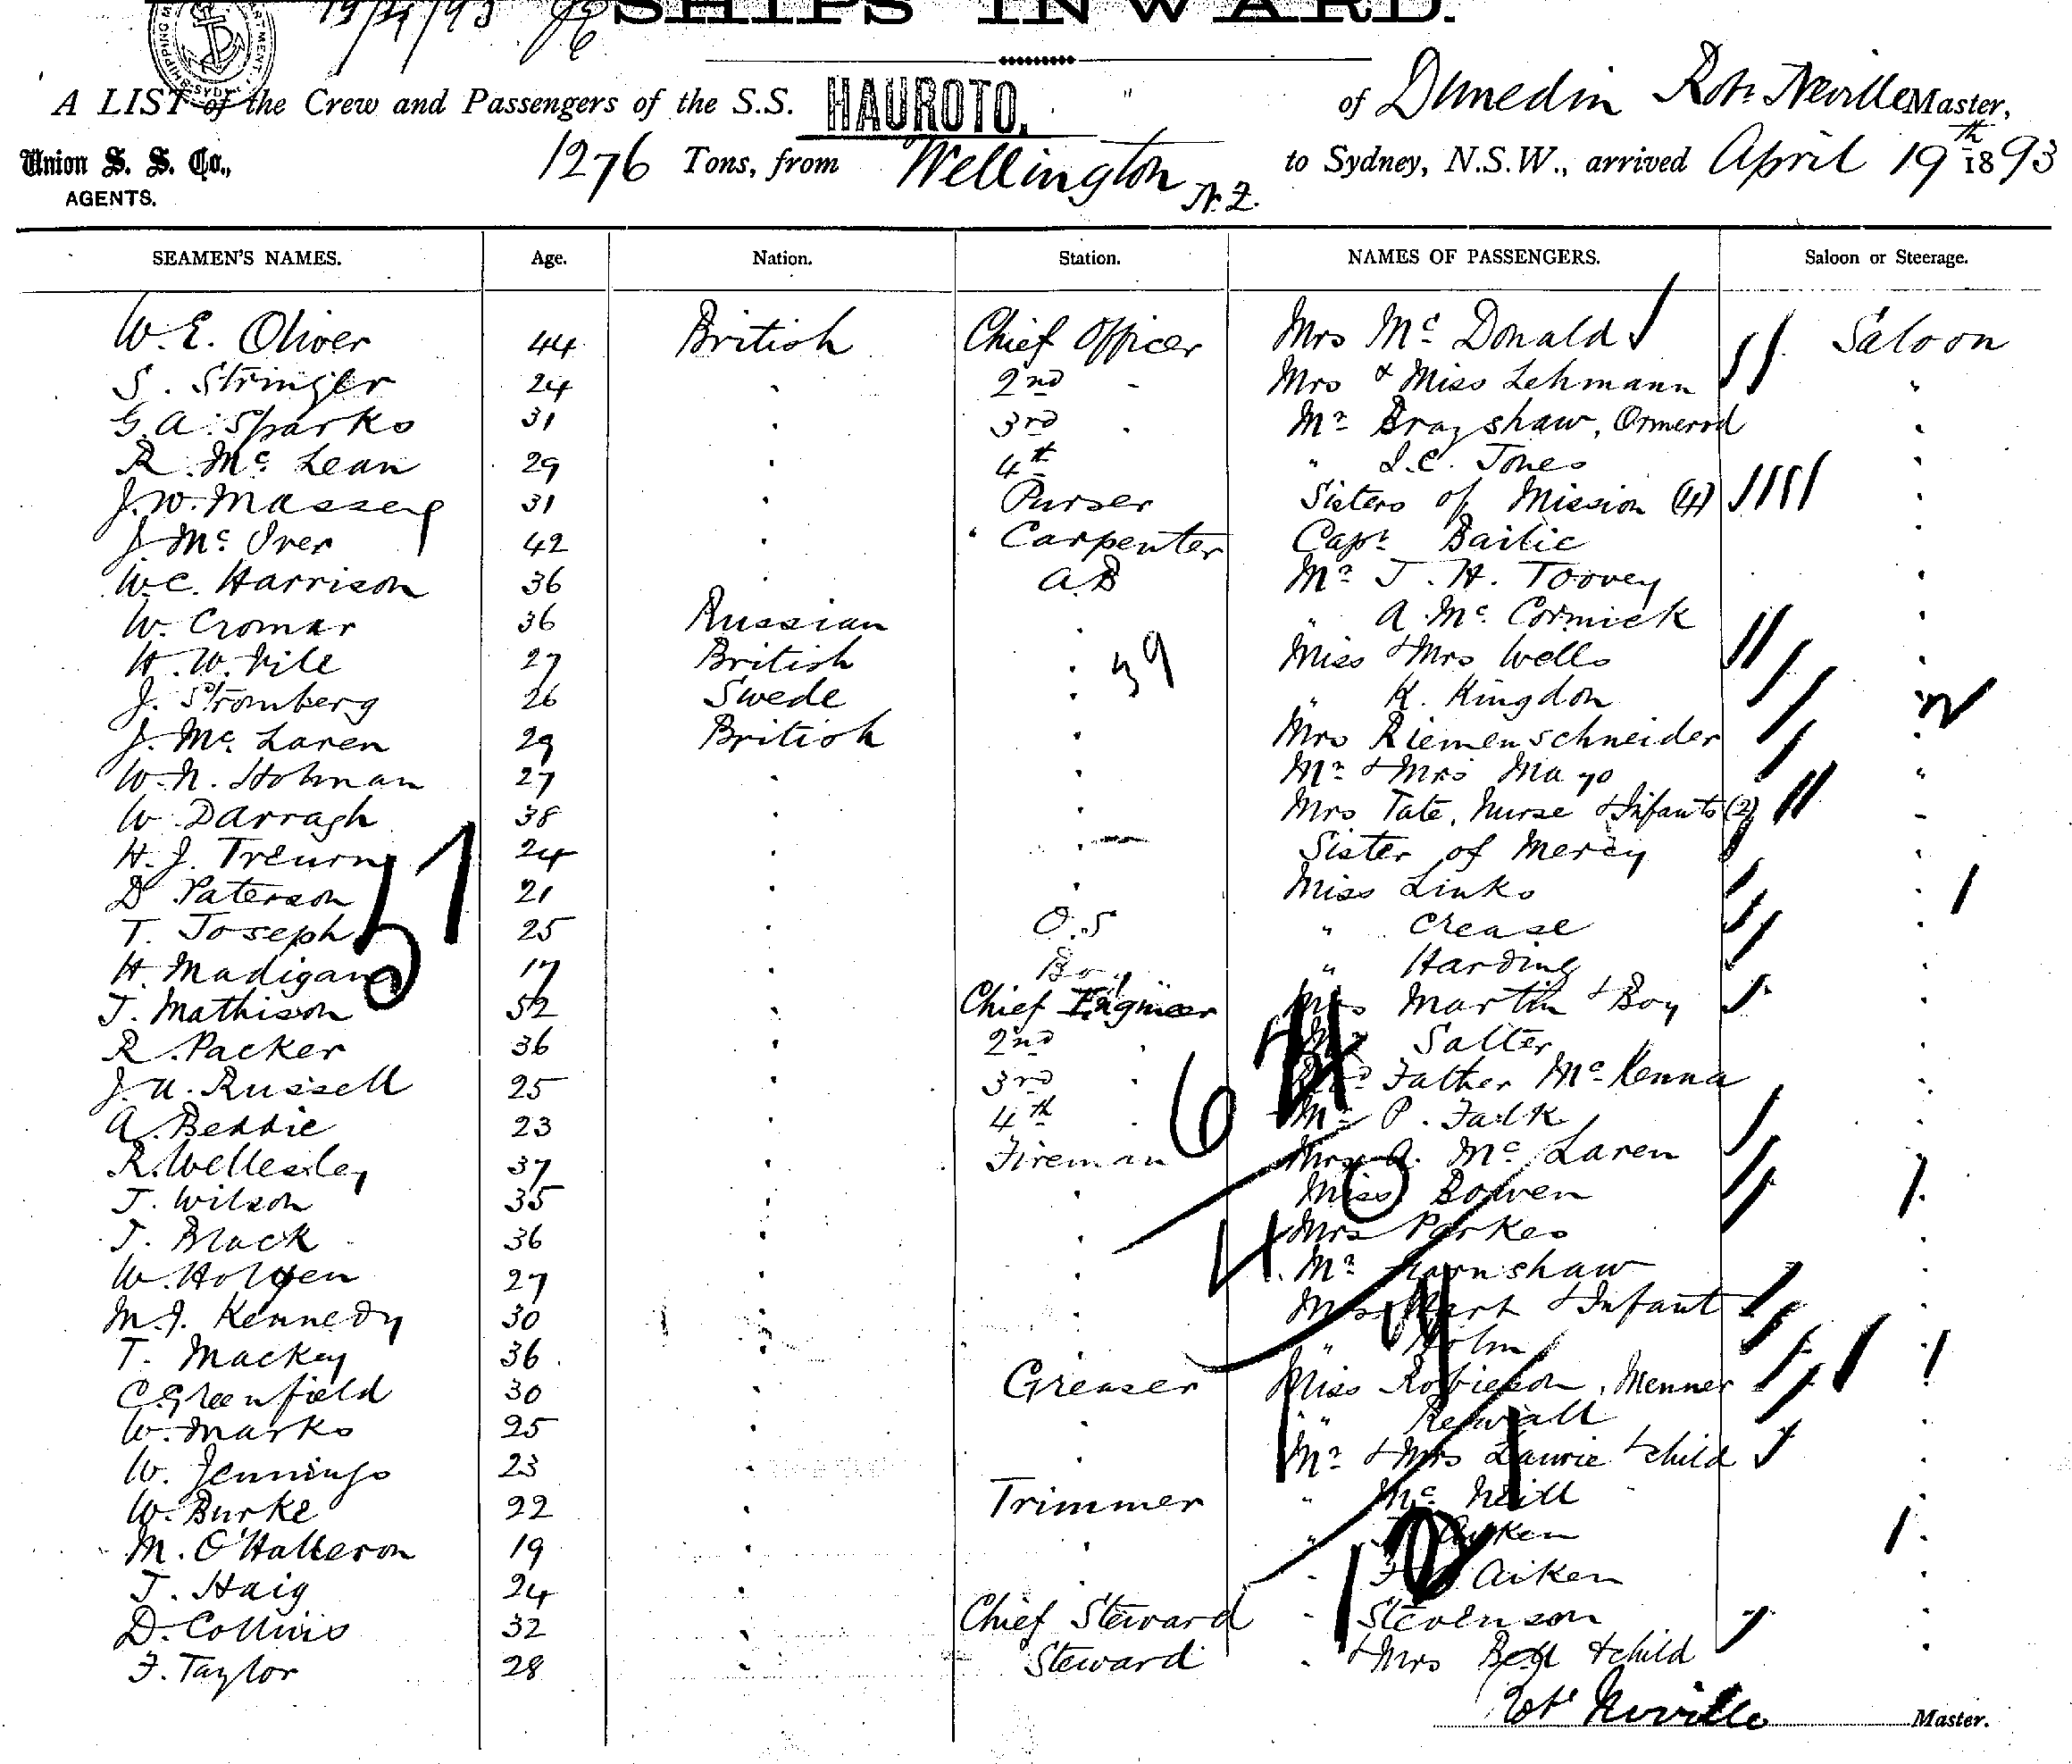 19/4/93
SHIPS INWARD.
A LIST of the Crew and Passengers of the S.S. HAUROTO. " of Dunedin Robt Neville Master,
Union S. S. Co., 1276 Tons, from Wellington N.Z. to Sydney, N.S.W., arrived April 19th 1893
AGENTS.
SEAMEN'S NAMES. Age. Nation. Station. NAMES OF PASSENGERS. Saloon or Steerage.
W. E. Oliver 44 British Chief Officer Mrs Mc Donald Saloon
S. Stringer 24 . 2nd - Mrs & Miss Lehmann "
G. A. Sparks 31 . 3rd . Mr Bragshaw, Ormerod .
R. Mc Lean 29 . 4th " J.C. Jones .
J. W. Massey 31 . Purser Sisters of Mission (4) .
J. Mc Iver 42 . Carpenter Capt Bailie .
W. C. Harrison 36 . A.B Mr J. H. Toovey .
W. Cromar 36 Russian . " A. Mc Cormick .
H. W. Vile 27 British . 39 Miss & Mrs Wells .
J. Stromberg 26 Swede . " K. Kingdon
J. Mc Laren 29 British . Mrs Riemenschneider .
W. N. Holman 27 . . Mr & Mrs Mayo "
W. Darragh 38 . . Mrs Tate, Nurse & Infants (2) -
H. J. 24 . . Sister of Mercy .
D Paterson 21 . . Miss Links .
T. Joseph 25 . O.S " Crease .
H. Madigan 17 . Boy " Harding .
J. Mathison 52 . Chief Engineer Mrs Martin & Boy .
R. Packer 36 . 2nd . Salter .
J. U. Russell 25 . 3rd . Father Mc Kenna .
A. Beddie 23 . 4th . Mr P. Falk .
R. Wellesley 37 . Fireman Mrs A. Mc Laren .
J. Wilson 35 . . Miss Bowen .
J. Black 36 . . Mrs Parkes .
W. Holgen 27 . . Mr Earnshaw .
M. J. Kennedy 30 . . & Infant .
T. Mackey 36 . . " Holm .
C. Greenfield 30 . Greaser Miss Robieson, Menner .
W. Marks 25 . . " .
W. Jennings 23 . . Mr & Mrs Laurie & child .
W. Burke 22 . Trimmer " Mc Neill
M. O'Halleron 19 . . " Aitken .
J. Haig 24 . . " Aiken .
D. Collins 32 . Chief Steward " Stevenson .
F. Taylor 28 . Steward . & Mrs Bell & child .
Robt Neville Master.